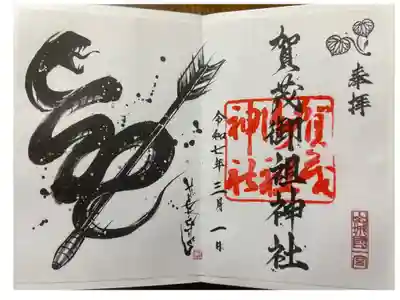 奉拝
賀茂御祖神社
賀茂
御祖
神社
山城国一宮
令和七年三月一日